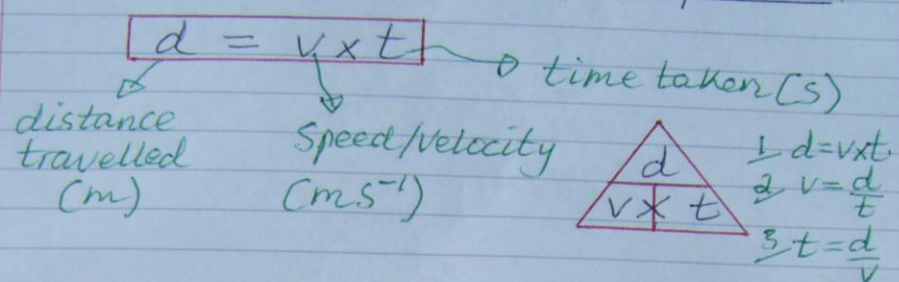 d = v x t
time taken (s)
distance travelled (m)
Speed/velocity (ms⁻¹)
d
v x t
1 d=vxt
2 v=d/t
3 t=d/v